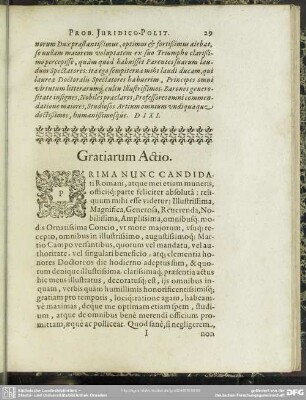 PROB. JURIDICO-POLIT. 29
norum Dux præstantissimus, optimus & fortissimus aiebat,
se nullam maiorem voluptatem ex suo Triumpho clarissi-
mo percepisse, quàm quod habuisset Parentes suarum lau-
dum Spectatores: ita ego sempiterna mihi laudi ducam, quod
laureæ Doctoralis Spectatores habuerim, Principes omni
virtutum litterarumq; cultu Illustrissimos, Barones genero-
sitate insignes, Nobiles præclaros, Professores omni commen-
datione maiores, Studiosos Artium omnium undiquaquaq;
doctissimos, humanissimosque. DIXI.
Gratiarum Actio.
PRIMA NUNC CANDIDA-
ti Romani, atque mei etiam muneris,
officiiq; parte feliciter absolutâ: reli-
quum mihi esse videtur; Illustrissima,
Magnifica, Generosa, Reverenda, No-
bilissima, Amplissima, omnibusq; mo-
dis Ornatissima Concio, ut more majorum, usuq; re-
cepto, omnibus in illustrissimo, augustissimoq; Mar-
tio Campo versantibus, quorum vel mandatu, vel au-
thoritate, vel singulari beneficio, atq; clementia ho-
nores Doctoreos die hodierno adeptus sum, & quo-
rum denique illustrissima, clarissimaq; præsentia actus
hic meus illustratus, decoratusq; est, ijs omnibus in-
quam, verbis quàm humillimis honorificentissimisq;
gratias pro temporis, lociq; ratione agam, habeam-
ve maximas, deque me optimam etiam spem, studi-
um, atque de omnibus bene merendi officium pro-
mittam, æque ac pollicear. Quod sanè, si negligerem,
I non